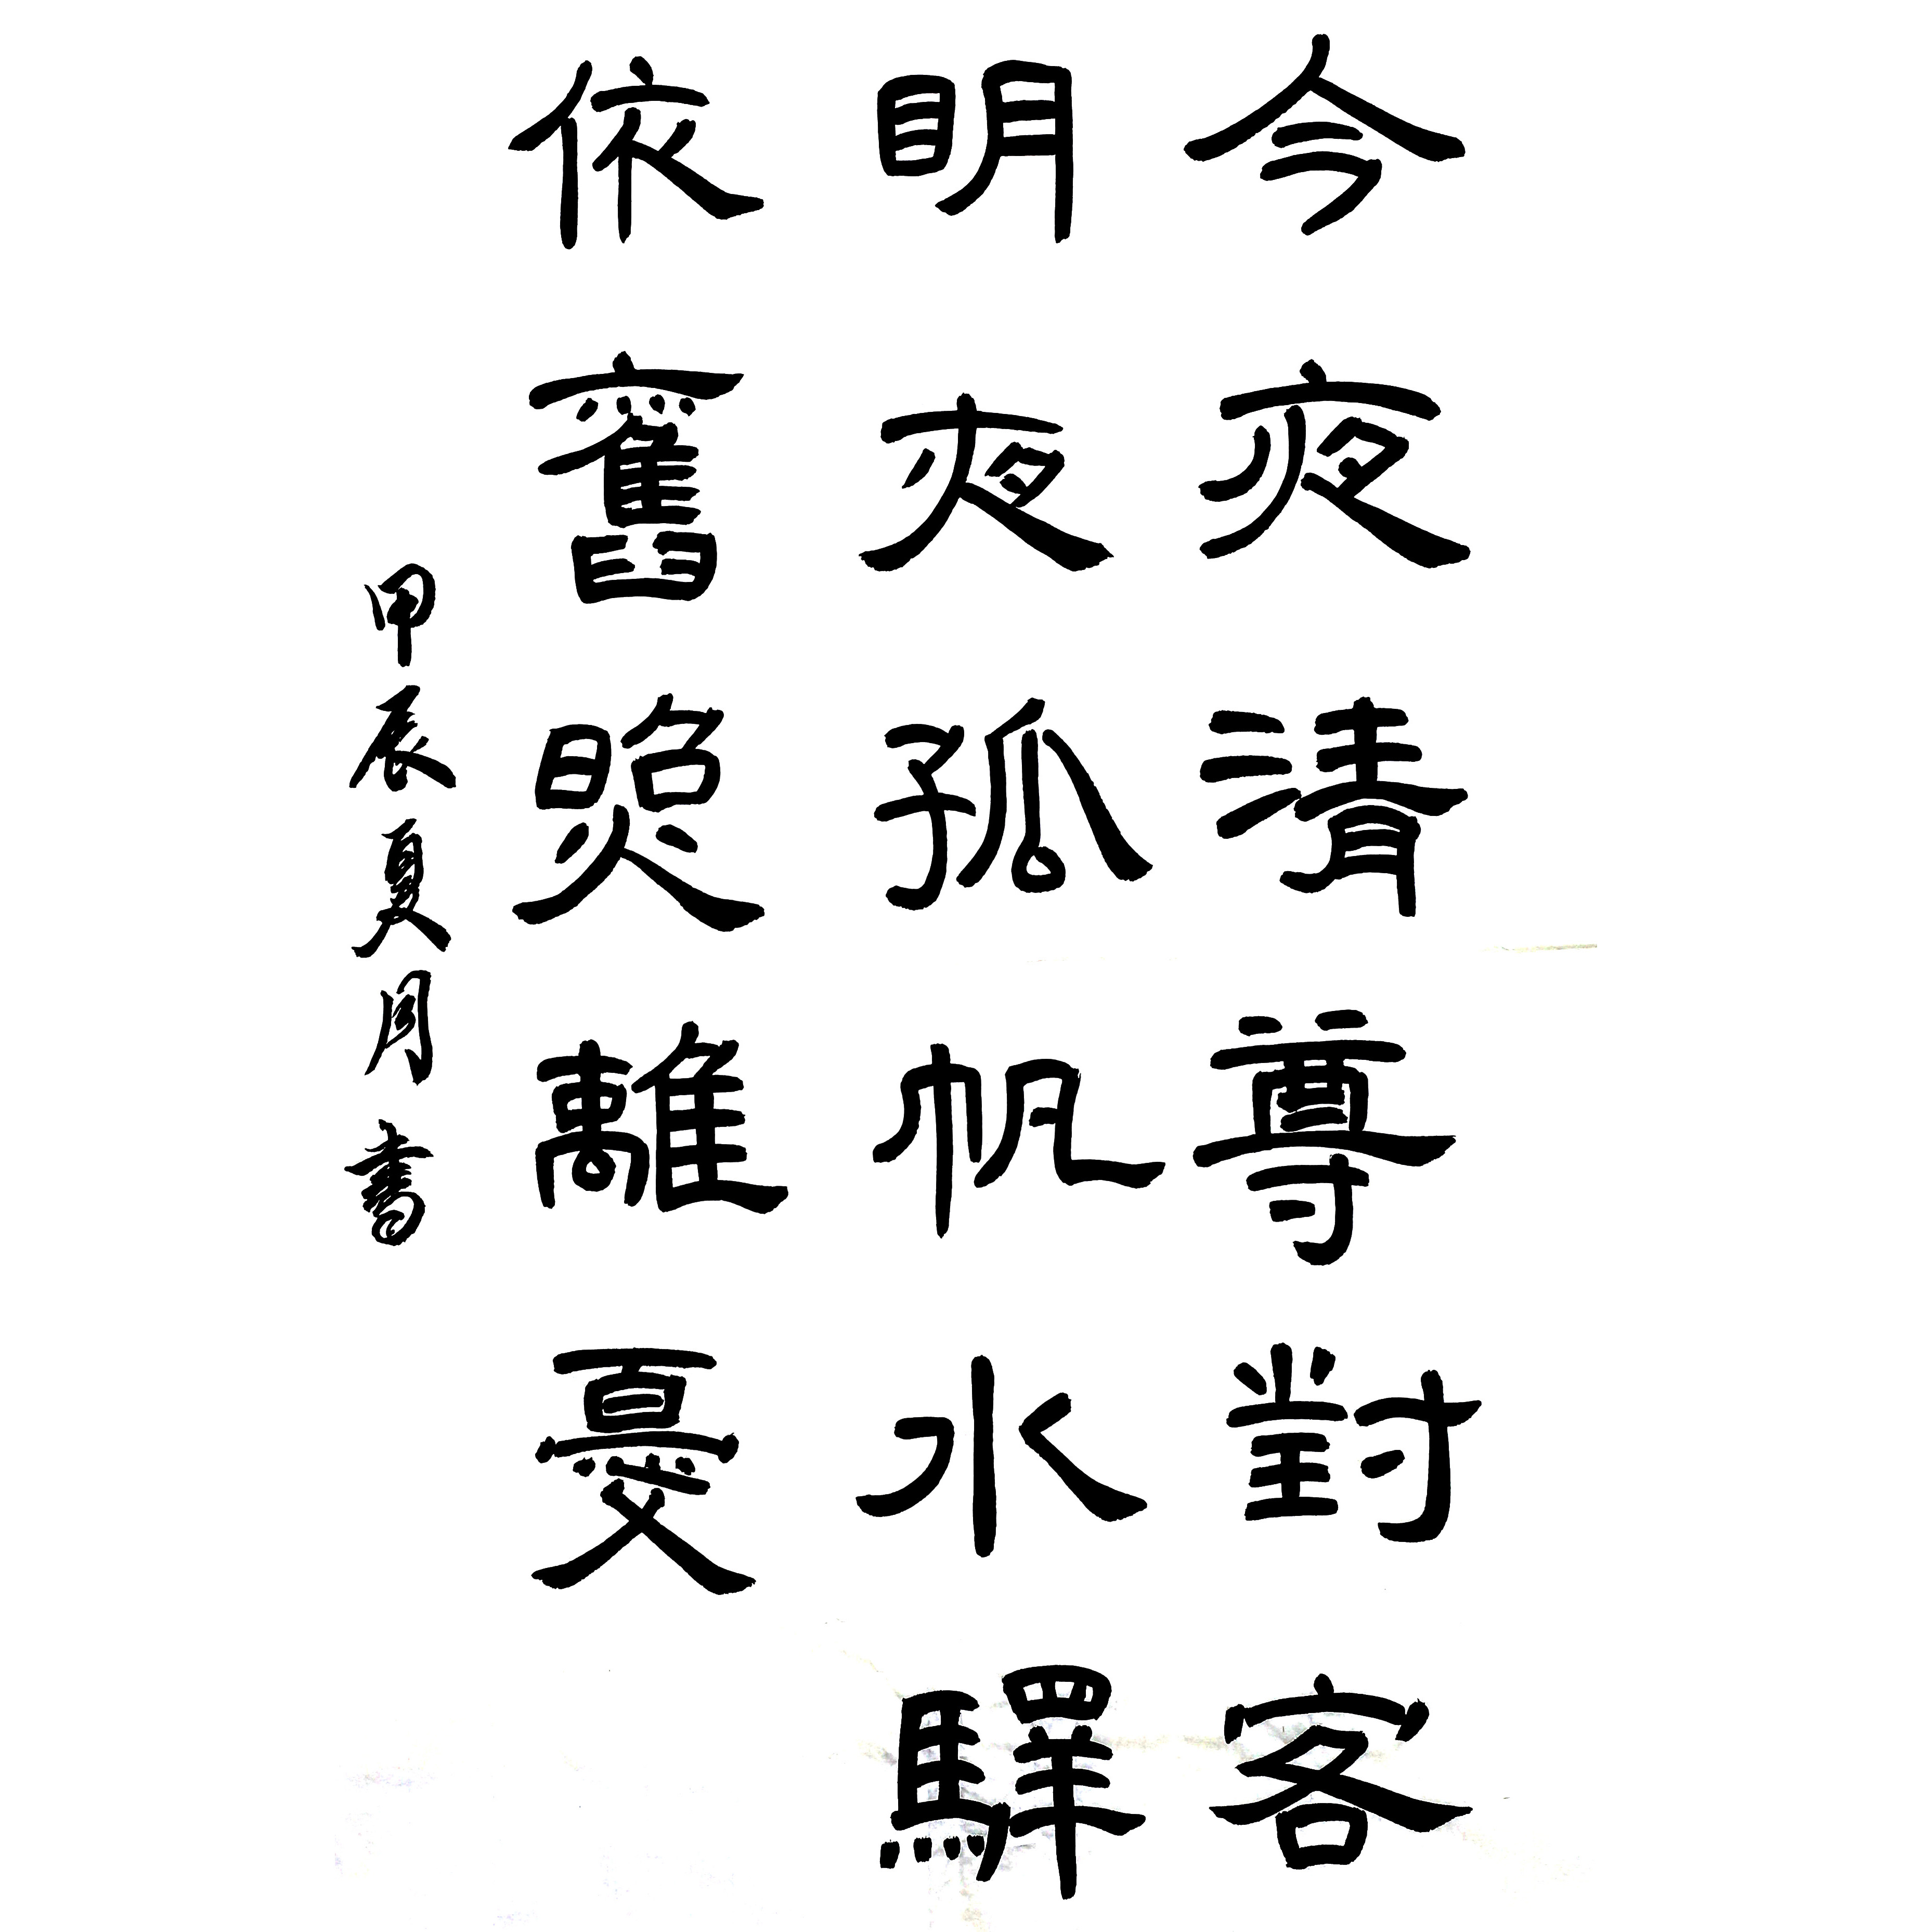 今夜清尊對客
明夜孤帆水驛
依舊照離憂
甲辰夏月書